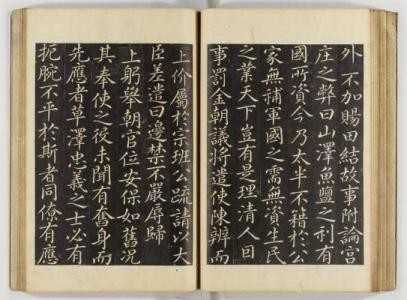 外不加賜田結故事附論宮
庄之弊曰山澤魚鹽之利有
國所資今乃太半不籍於公
家無補軍國之需無資生民
之業天下豈有是理清人回
事罰金朝議將遣使陳辨而
上价屬於宗班公疏請以大
臣差遣曰邊禁不嚴辱歸
上躬舉朝官位安保如舊況
其奉使之役未聞有奮身而
先應者草澤忠義之士必有
扼腕不平於斯者同僚有應